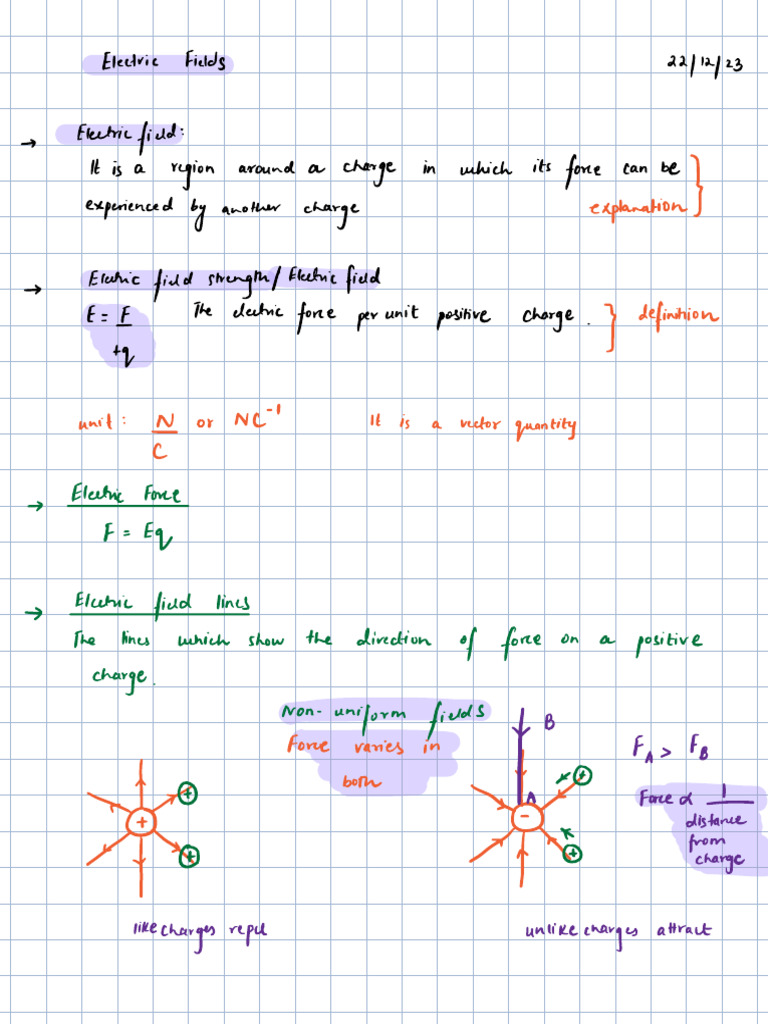 Electric Fields
22/12/23
→ Electric field:
It is a region around a charge in which its force can be
experienced by another charge
explanation
→ Electric field strength/Electric field
E = F/+q The electric force per unit positive charge.
definition
unit: N/C or NC⁻¹ It is a vector quantity
→ Electric Force
F = Eq
→ Electric field lines
The lines which show the direction of force on a positive
charge.
Non-uniform fields
Force varies in
both
B
A
F_A > F_B
Force ∝ 1/distance
from
charge
+
+
+
-
+
+
like charges repel
unlike charges attract